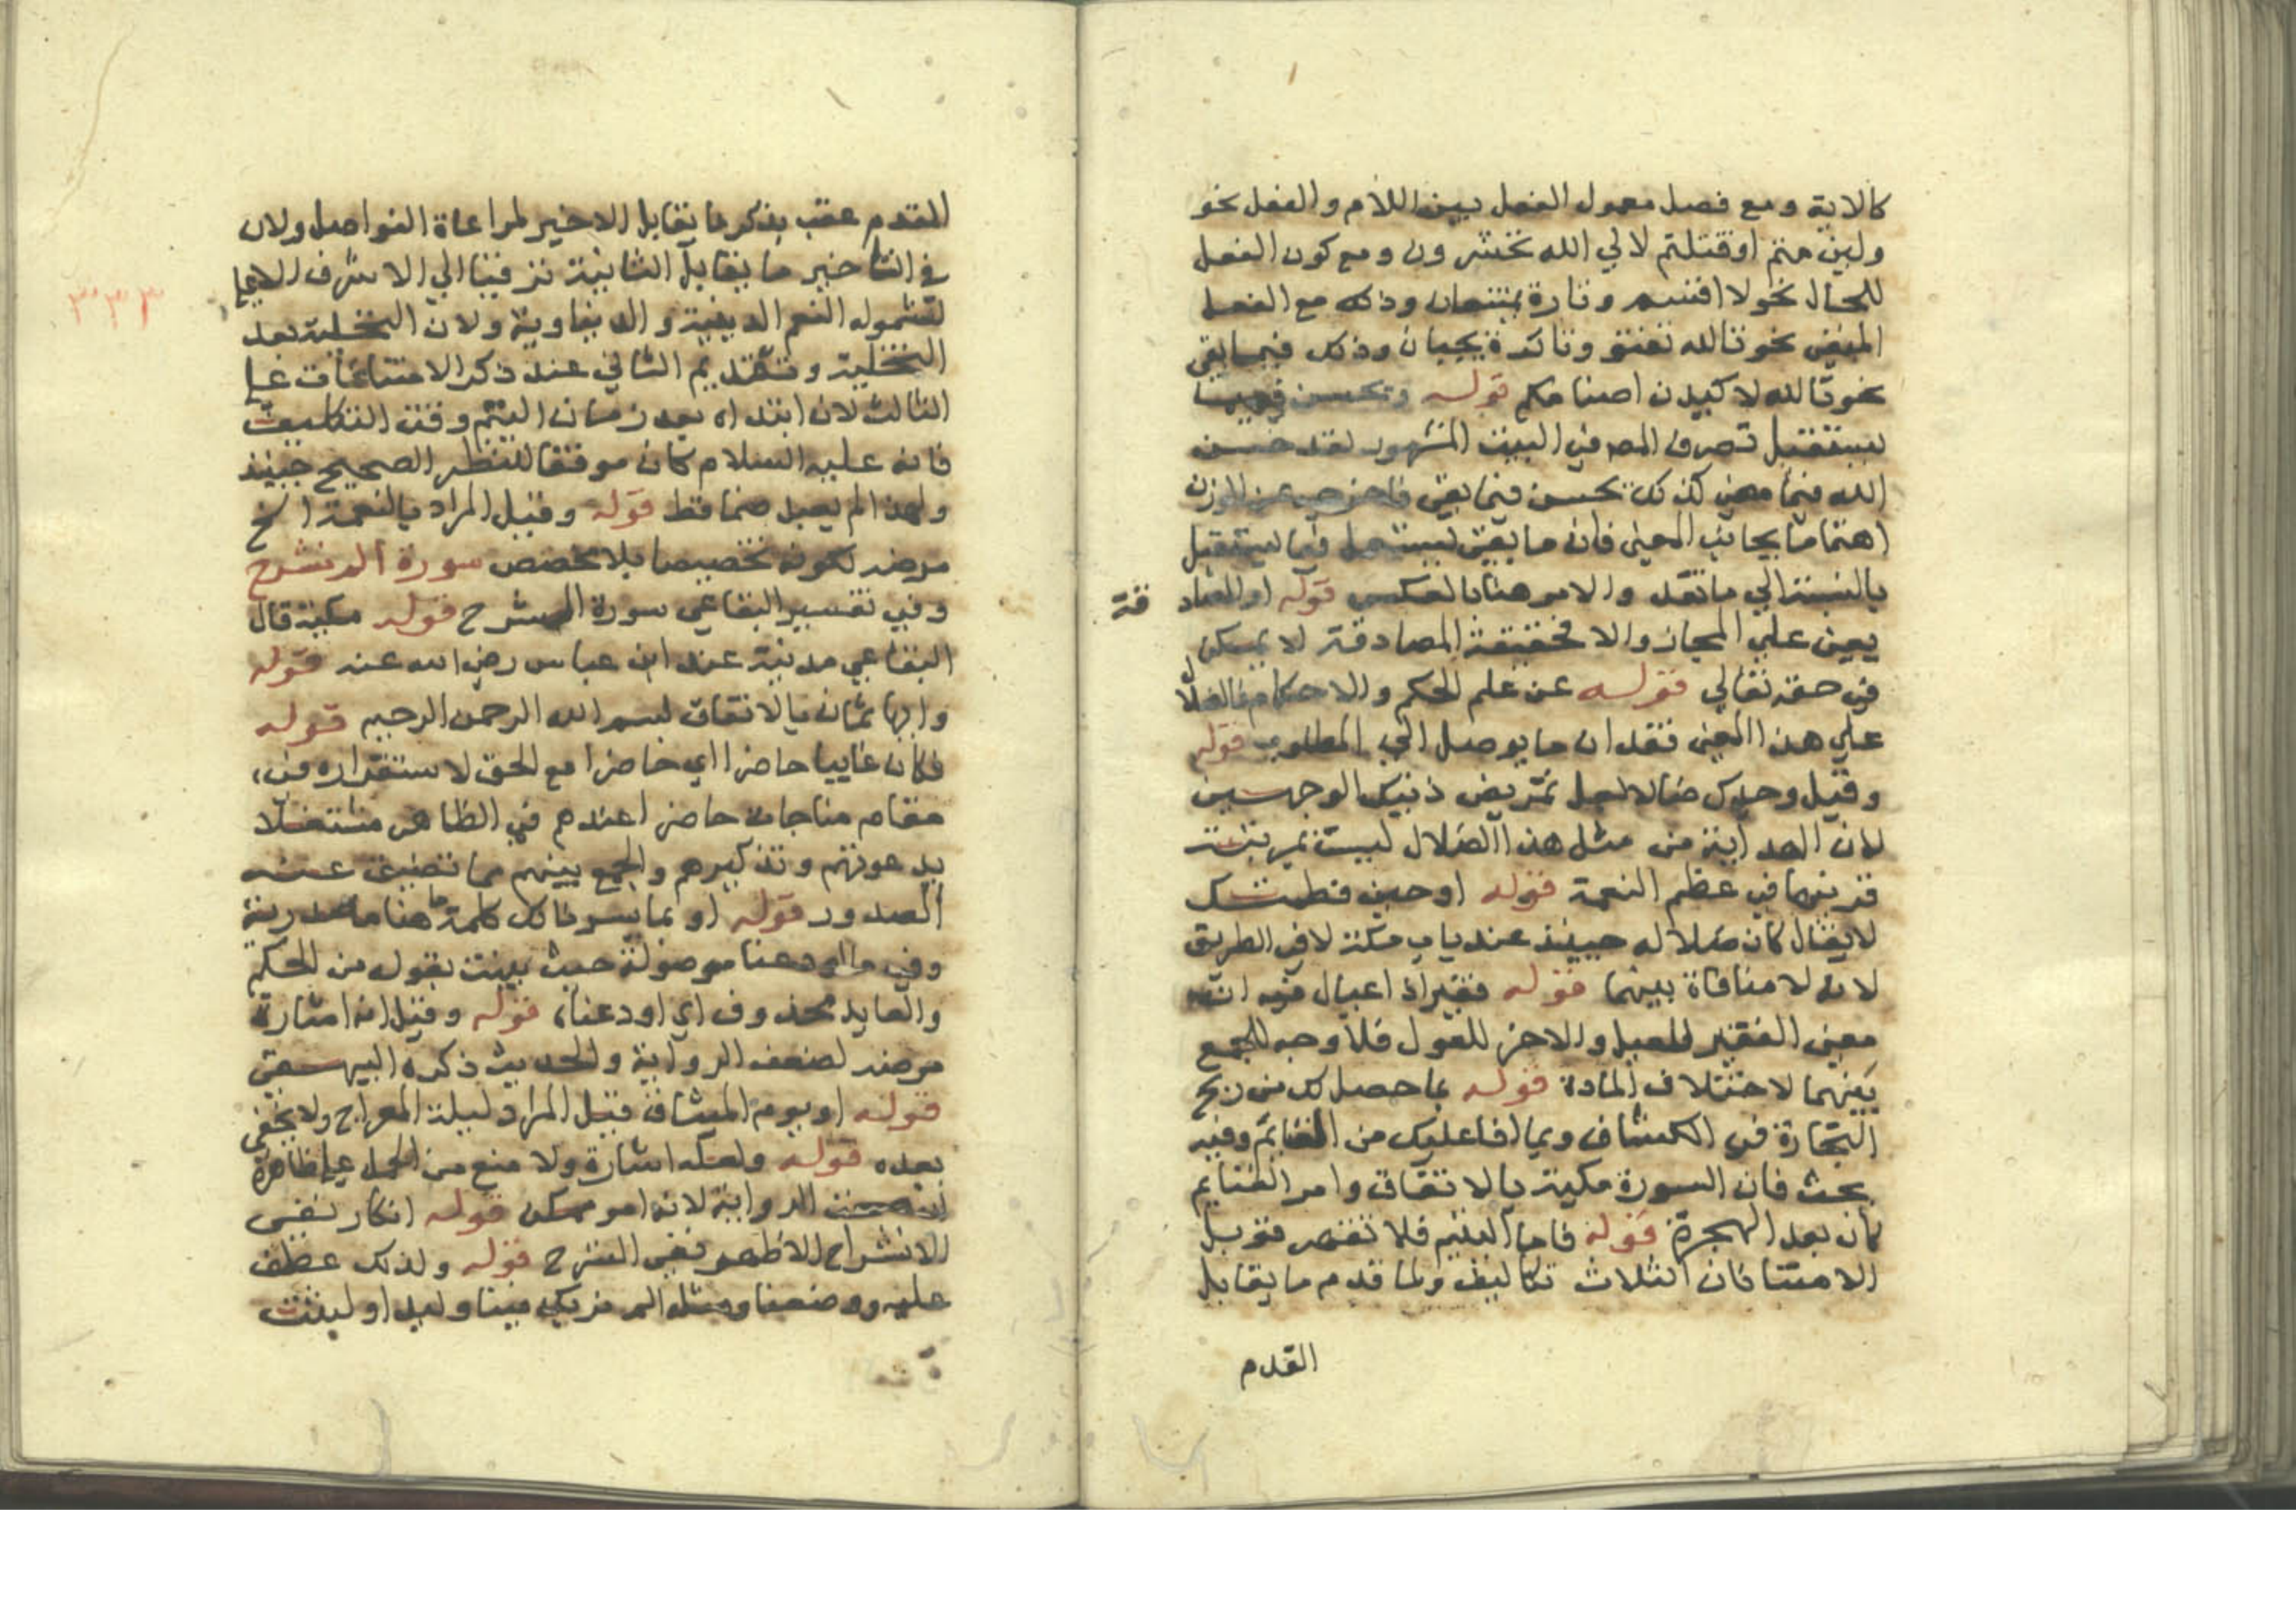 كالاية ومع فصل معمول الفعل بين اللام والفعل نحو
ولين متم او قتلتم لالي الله تحشرون ومع كون الفعل
للحال نحو لا اقسم وتارة يمتنعان وذلك مع الفعل
المنفي نحو تالله تفتؤ وتارة يجبان وذلك فيما بقي
نحو تالله لاكيدن اصنامكم قوله وتحسن فيما
يستقبل تصرف المص في البيت المشهور لقد حسن
الله فيما مضى كذلك يحسن فيما بقي فاخرجه عن الوزن
اهتماما بجانب المعنى فان ما بقي يستعمل فيما يستقبل
بالنسبة الي ما تقد والامر هنا بالعكس قوله او المصاد فة
يعني علي المجاز والا فحقيقة المصادفة لا يمكن
في حقه تعالي قوله عن علم الحكم والاحكام فالضلال
علي هذا المعنى فقدان ما يوصل الي المطلوب قوله
وقيل وجدك ضالا لعل تمريض ذنيك الوجهين
لان الهداية من مثل هذا الضلال ليست بمرتبة
قرينها في عظم النعمة قوله او حين فطمتك
لا يقال كان ضلاله حينيذ عند باب مكة لا في الطريق
لانه لا منافاة بينهما قوله فقيرا ذا عيال فيه ان
معنى الفقير المعيل والاخر للعول فلا وجه للجمع
بينهما لاختلاف المادة قوله بما حصل لك من ربح
التجارة في الكشاف وبما افا عليك من الغنايم وفيه
بحث فان السورة مكية بالاتفاق وامر الغنايم
كان بعد الهجرة قوله فاما اليتيم فلا تقهر قوبل
الامتنانات الثلاث تكاليف ولما قدم ما يقابل
القدم
٣٣٣
المقدم عقب بذكر ما يقابل الاخير لمراعاة الفواصل ولان
في التاخير ما يقابل الثانية ترقيا الي الاشرف الاعلى
لشموله النعم الدينية والدنياوية ولان التحلية بعد
التخلية وتقديم الثاني عند ذكر الامتنانات على
الثالث لان ابتداه بعد زمان اليتم وقت التكليف
فانه عليه السلام كان موفقا للنظر الصحيح حينيذ
ولهذا لم يعبد صنما قط قوله وقيل المراد بالنعمة الخ
مرضه لكونه تخصيصا بلا مخصص سورة الم نشرح
وفي تفسير البقاعي سورة الم نشرح قوله مكية قال
البقاعي مدنية عند ابن عباس رضي الله عنه قوله
وايها ثمان بالاتفاق بسم الله الرحمن الرحيم قوله
فكان غايبا حاضرا اي حاضرا مع الحق لاستقراره في
مقام مناجاته حاضرا عندهم في الظاهر مشتغلا
بدعوتهم وتذكيرهم والجمع بينهم مما تضيق عنه
الصدور قوله او بما يسرنا لك كلمة ما هنا مصدرية
وفي ما اودعنا موصولة حيث بينت بقوله من الحكم
والعايد محذوف اي اودعناه قوله وقيل انه اشارة
مرضه لضعف الرواية والحديث ذكره البيهقي
قوله او يوم الميثاق قيل المراد ليلة المعراج ولا يخفى
بعده قوله ولعله اشارة ولا منع من الحمل على ظاهره
الرواية لانه امر ممكن قوله انكار نفي
الانشراح الاظهر نفي الشرح قوله ولذلك عطف
عليه ووضعنا ومثله الم نربك فينا وليدا ولبثت